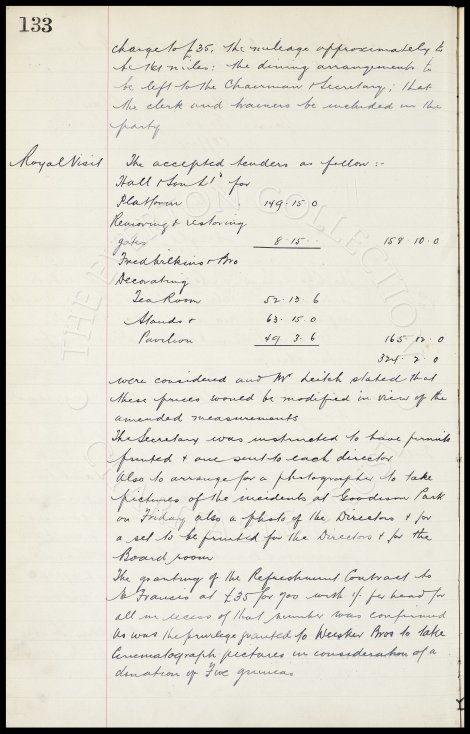 133
charge to £35. the mileage approximately to
be 161 miles: the dining arrangements to
be left to the Chairman & Secretary; that
the clerk and trainers be included in the
party
Royal Visit The accepted tenders as follow:-
Hall & Son Ld for
Platform 149. 15. 0
Removing & restoring
gates 8. 15. 158. 10. 0
Fred Wilkins & Bro
Decorating
Tea Room 52. 13. 6
Stands & 63. 15. 0
Pavilion 49. 3. 6 165. 12. 0
324. 2. 0
were considered and Mr Leitch stated that
these prices would be modified in view of the
amended measurements
The Secretary was instructed to have permits
printed & one sent to each director
Also to arrange for a photographer to take
pictures of the incidents at Goodison Park
on Friday also a photo of the Directors & for
a set to be printed for the Directors & for the
Board room
The granting of the Refreshment Contract to
Mr Francis at £35 for 700 with 1/- per head for
all in excess of that number was confirmed
As was the privilege granted to Weisker Bros to take
Cinematograph pictures in consideration of a
donation of Five guineas
THE EVERTON COLLECTION